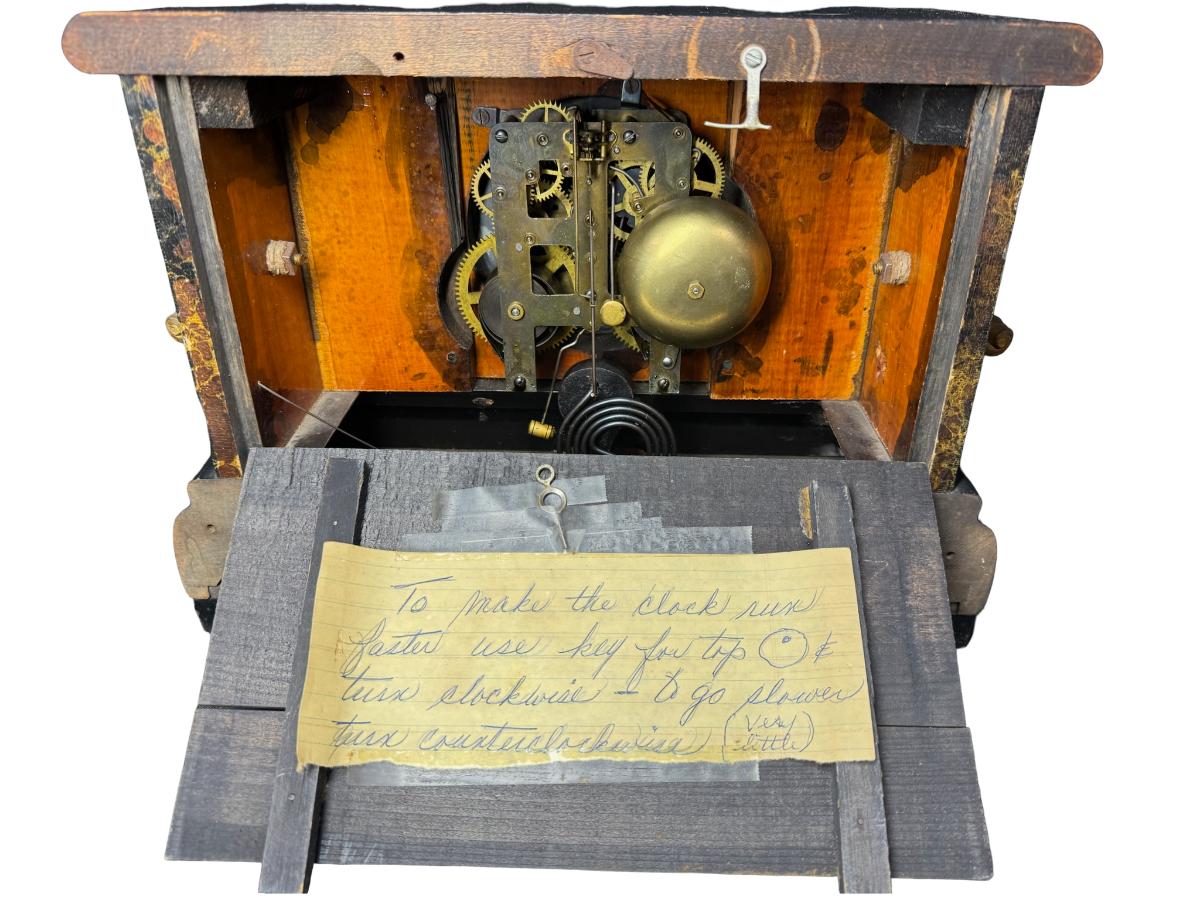 To make the clock run
faster use key for top &
turn clockwise - to go slower
turn counterclockwise (very
little)